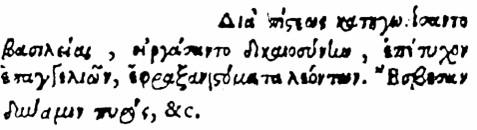 Διὰ πίστεως κατηγωνίσαντο
βασιλείας, εἰργάσαντο δικαιοσύνην, ἐπέτυχον
ἐπαγγελιῶν, ἔφραξαν στόματα λεόντων. Ἔσβεσαν
δύναμιν πυρός, &c.